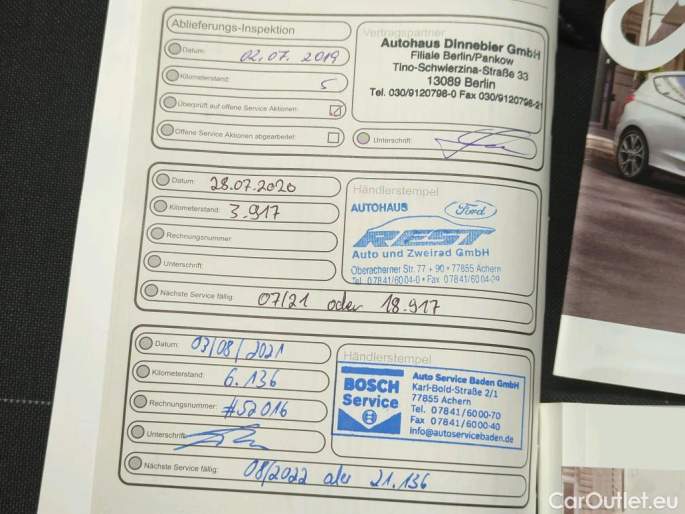 Ablieferungs-Inspektion
Vertragspartner
Datum: 02.07.2019
Kilometerstand: 5
Überprüft auf offene Service Aktionen:
Offene Service Aktionen abgearbeitet:
Autohaus Dinnebier GmbH
Filiale Berlin/Pankow
Tino-Schwierzina-Straße 33
13089 Berlin
Tel. 030/9120798-0 Fax 030/9120798-21
Unterschrift:
Datum: 28.07.2020
Kilometerstand: 3.917
Rechnungsnummer
Unterschrift
Nächste Service fällig: 07/21 oder 18.917
Händlerstempel
AUTOHAUS
Ford
REST
Auto und Zweirad GmbH
Oberacherner Str. 77 + 90 • 77855 Achern
Tel. 07841/6004-0 • Fax 07841/6004-29
Datum: 03/08/2021
Kilometerstand: 6.136
Rechnungsnummer: #52016
Unterschrift
Nächste Service fällig: 08/2022 oder 21.136
Händlerstempel
BOSCH
Service
Auto Service Baden GmbH
Karl-Bold-Straße 2/1
77855 Achern
Tel. 07841/6000-70
Fax 07841/6000-40
info@autoservicebaden.de
CarOutlet.eu